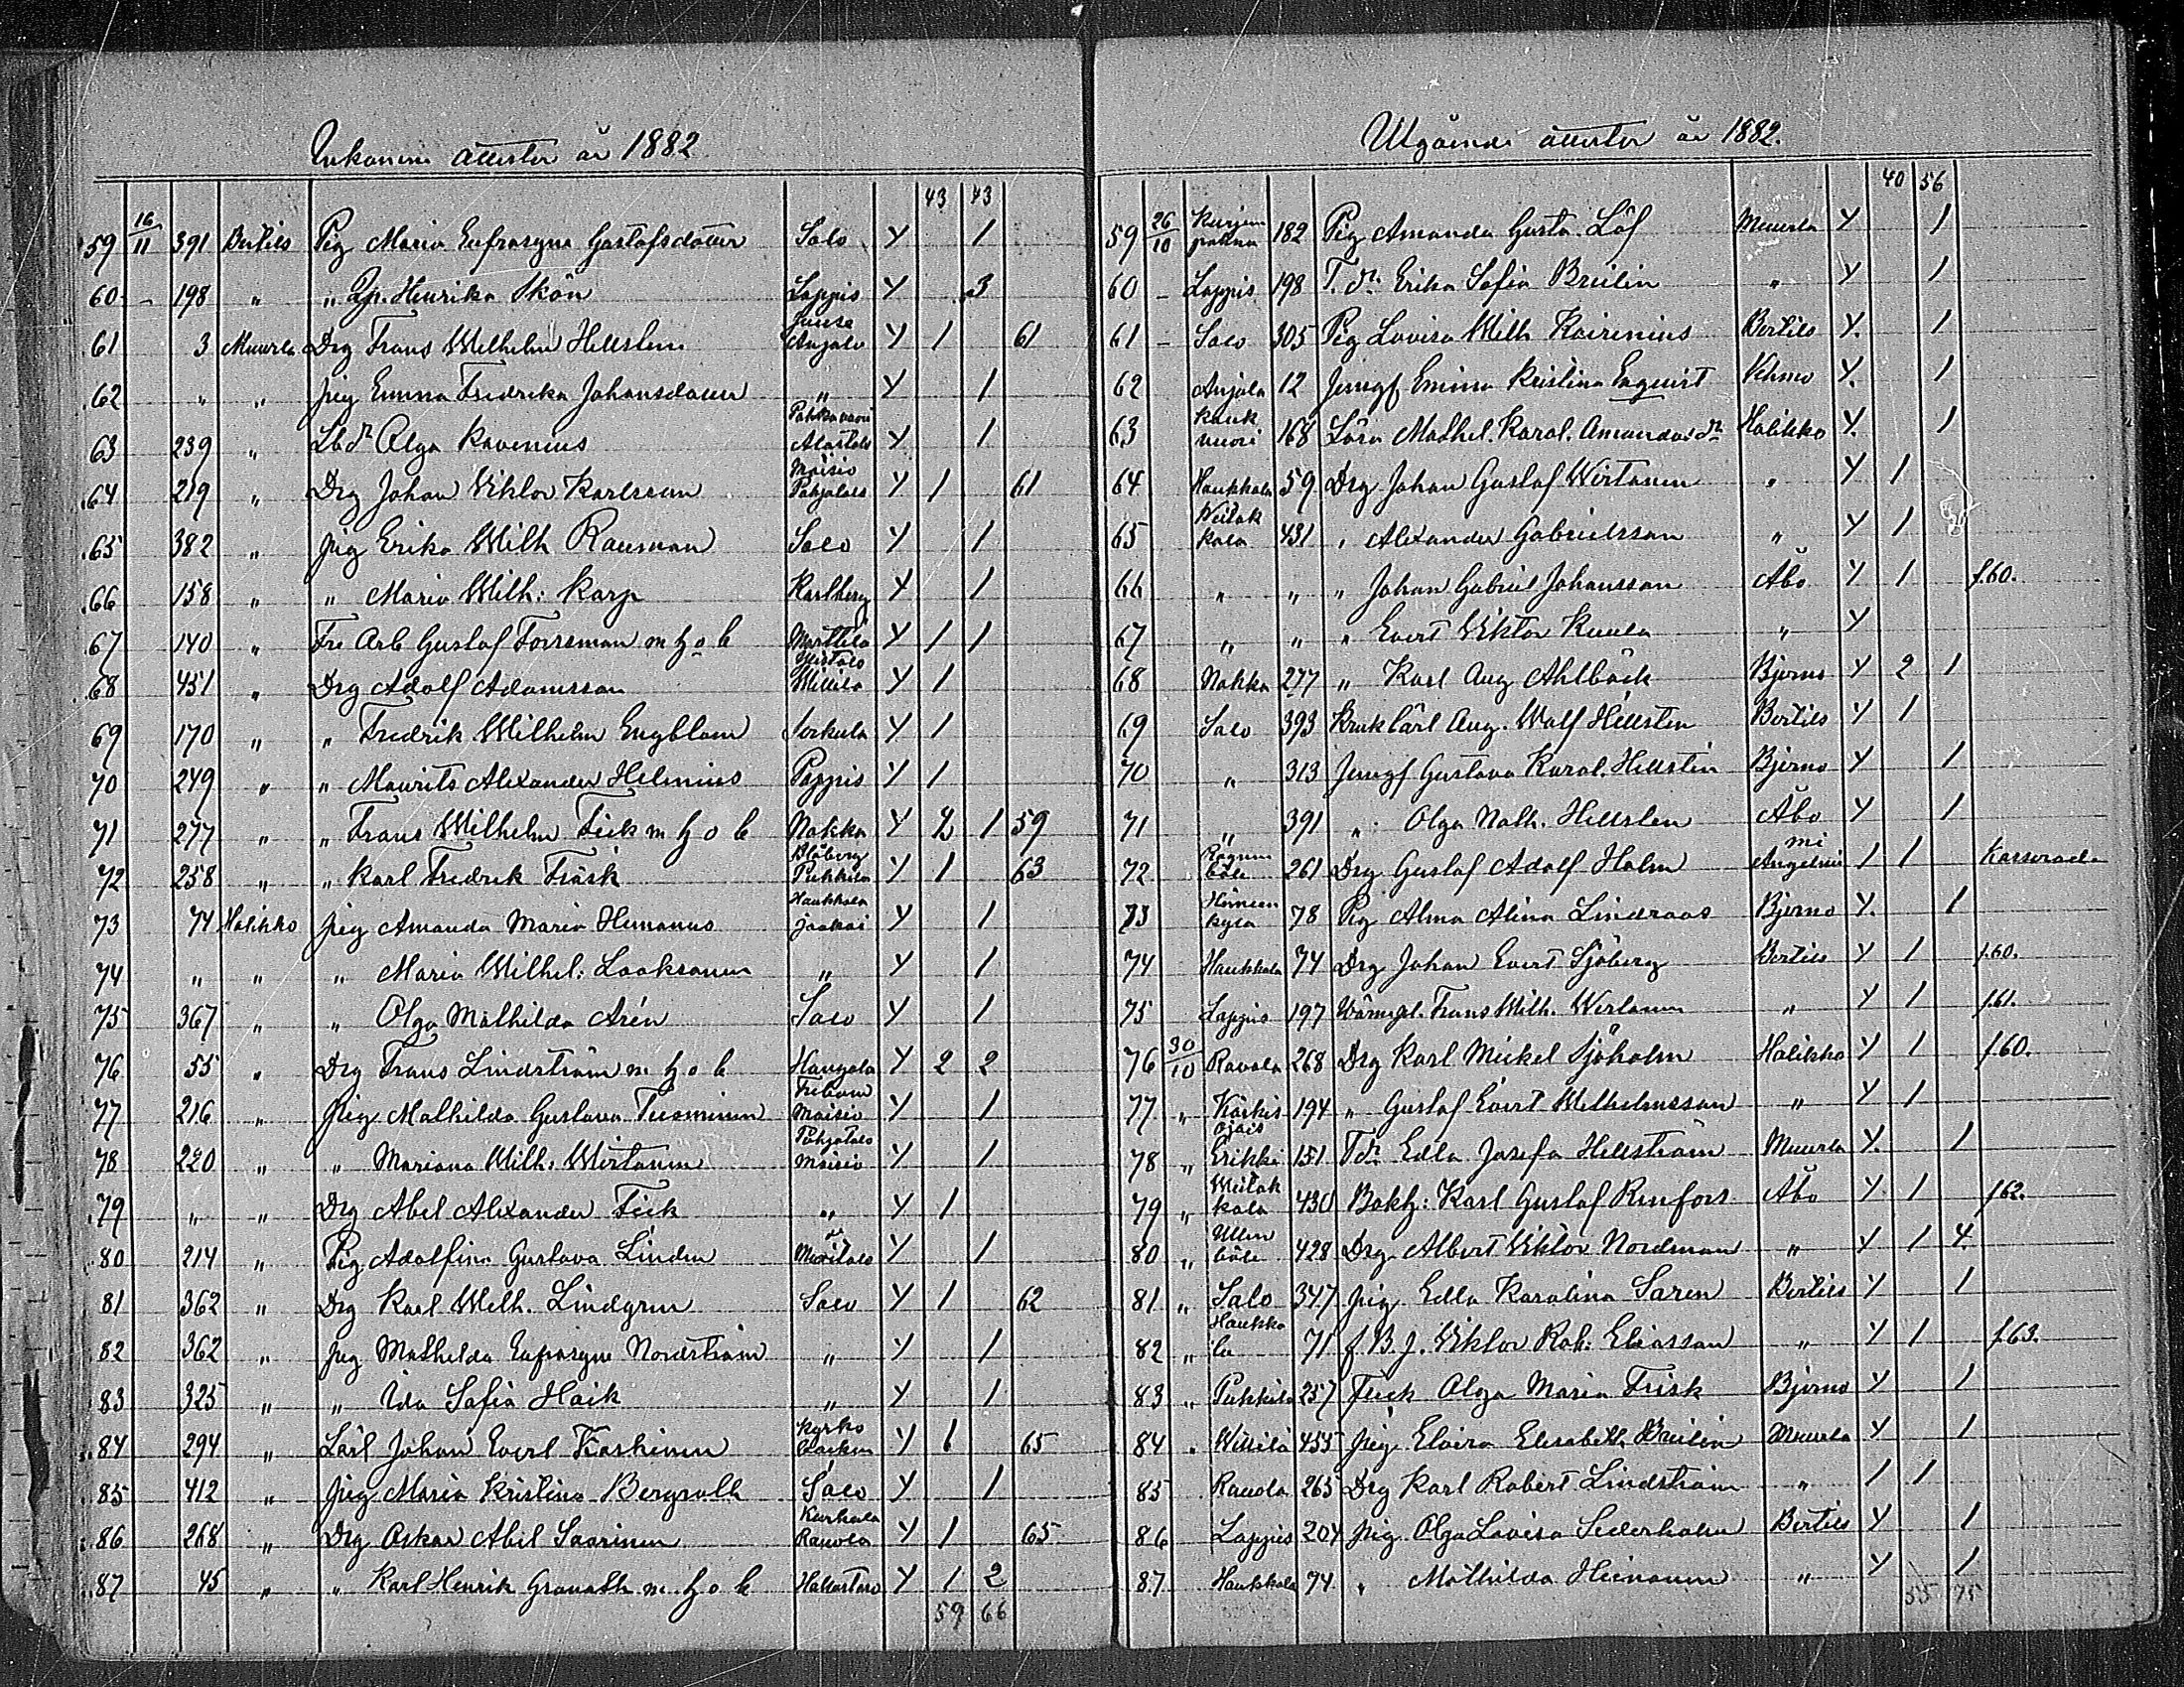 Inkomne attester år 1882
43 43
59 16/11 391 Bertils Pig Maria Eufrosyna Gustafsdotter Salo Y 1
60 - 198 " " Henrika Skön Lappis Y 3
61 3 Muurla Drg Frans Wilhelm Hellsten Anjala Y 1 61
62 " " pig Emma Fredrika Johansdotter " Y 1
63 239 " Olga Kavenius Alastalo Y 1
64 219 " Drg Johan Viktor Karlsson Moisio Pohjatalo Y 1 61
65 382 " pig Erika Wilh Rausman Salo Y 1
66 158 " " Maria Wilh: Karp Karlberg Y 1
67 140 " Arb Gustaf Forsman m h o b Marttila Y 1 1
68 451 " Drg Adolf Adamsson Willilä Y 1
69 170 " " Fredrik Wilhelm Engblom Y 1
70 249 " " Maurits Alexander Helenius Pappis Y 1
71 277 " " Frans Wilhelm Fick m h o b Nokka Y 1 59
72 258 " " Karl Fredrik Träsk Blåberg Pukkila Y 1 63
73 74 Halikko pig Amanda Maria Haukkala Y 1
74 " " " Maria Wilhel: Laaksonen " Y 1
75 367 " " Olga Mathilda Arén Salo Y 1
76 55 " Drg Frans Lindström m h o b Y 2 2
77 216 " pig Mathilda Gustava Tuominen Moisio Y 1
78 220 " " Mariana Wilh. Wirtanen Pohjatalo Moisio Y 1
79 " " Drg Abel Alexander Fick " Y 1
80 214 " Pig Adolfina Gustava Linden Y 1
81 362 " Drg Karl Wilh. Lindgren Salo Y 1 62
82 362 " pig Mathilda Eufrosyne Nordström " Y 1
83 325 " " Ida Sofia Haik " Y 1
84 294 " Lärl Johan Evert Koskinen Kyrko Y 1 65
85 412 " pig Maria Kristina Bergroth Salo Y 1
86 268 " Drg Oskar Abel Saarinen Rauvola Y 1 65
87 45 " " Karl Henrik Granath m h o b Y 1 2
59 66
Utgående attester år 1882.
40 56
59 26/10 182 Pig Amanda Gusta. Löf Muurla Y 1
60 - Lappis 198 T. dr Erika Sofia Breilin " Y 1
61 - Salo 305 Pig Lovisa Wilh Kairenius Bertils Y. 1
62 Anjala 12 Jungf Emma Kristina Enqvist Vehmo Y. 1
63 vuori 168 Mathel. Karol. Amandas dr Halikko Y. 1
64 Haukkala 59 Drg Johan Gustaf Wirtanen " Y 1
65 Veitakkala 431 " Alexander Gabrielsson " Y 1
66 " " " Johan Gabriel Johansson Åbo Y 1 f.60.
67 " " " Evert Viktor Kuula " Y
68 Nokka 277 " Karl Aug Ahlbäck Bjerno Y 2 1
69 Salo 393 Aug. Wolf Hellsten Bertils Y 1
70 " 313 Jungf Gustava Karol. Hellsten Bjerno Y 1
71 " 391 " Olga Nath. Hellsten Åbo Y 1
72 261 Drg Gustaf Adolf Holm Angelniemi 1 1
73 78 Pig Alma Alina Lindroos Bjerno Y. 1
74 Haukkala 74 Drg Johan Evert Sjöberg Bertils Y 1 f.60.
75 Lappis 197 Frans Wilh. Wirtanen " Y 1 f.61.
76 30/10 Rauvola 268 Drg Karl Mickel Sjöholm Halikko Y 1 f.60.
77 " 194 " Gustaf Evert Wilhelmsson " Y 1
78 " Erikki 151 Tdr Edla Josefa Hellström Muurla Y. 1
79 " Veitakkala 430 Bokh: Karl Gustaf Renfors Åbo Y 1 f62.
80 " 428 Drg Albert Viktor Nordman " Y 1 4.
81 " Salo 347 pig Edla Karolina Saren Bertils Y 1
82 " Haukkala 71 f B.J. Viktor Rob: Eliasson " Y 1 f.63.
83 " Pukkila 257 Olga Maria Frisk Bjerno Y 1
84 " Willilä 455 pig Elvira Elisabeth Breilin Muurla Y 1
85 Rauvola 265 Drg Karl Robert Lindström " 1 1
86 Lappis 204 pig Olga Lovisa Sederholm Bertils Y 1
87 Haukkala 74 " Mathilda Heinonen " Y 1
55 75